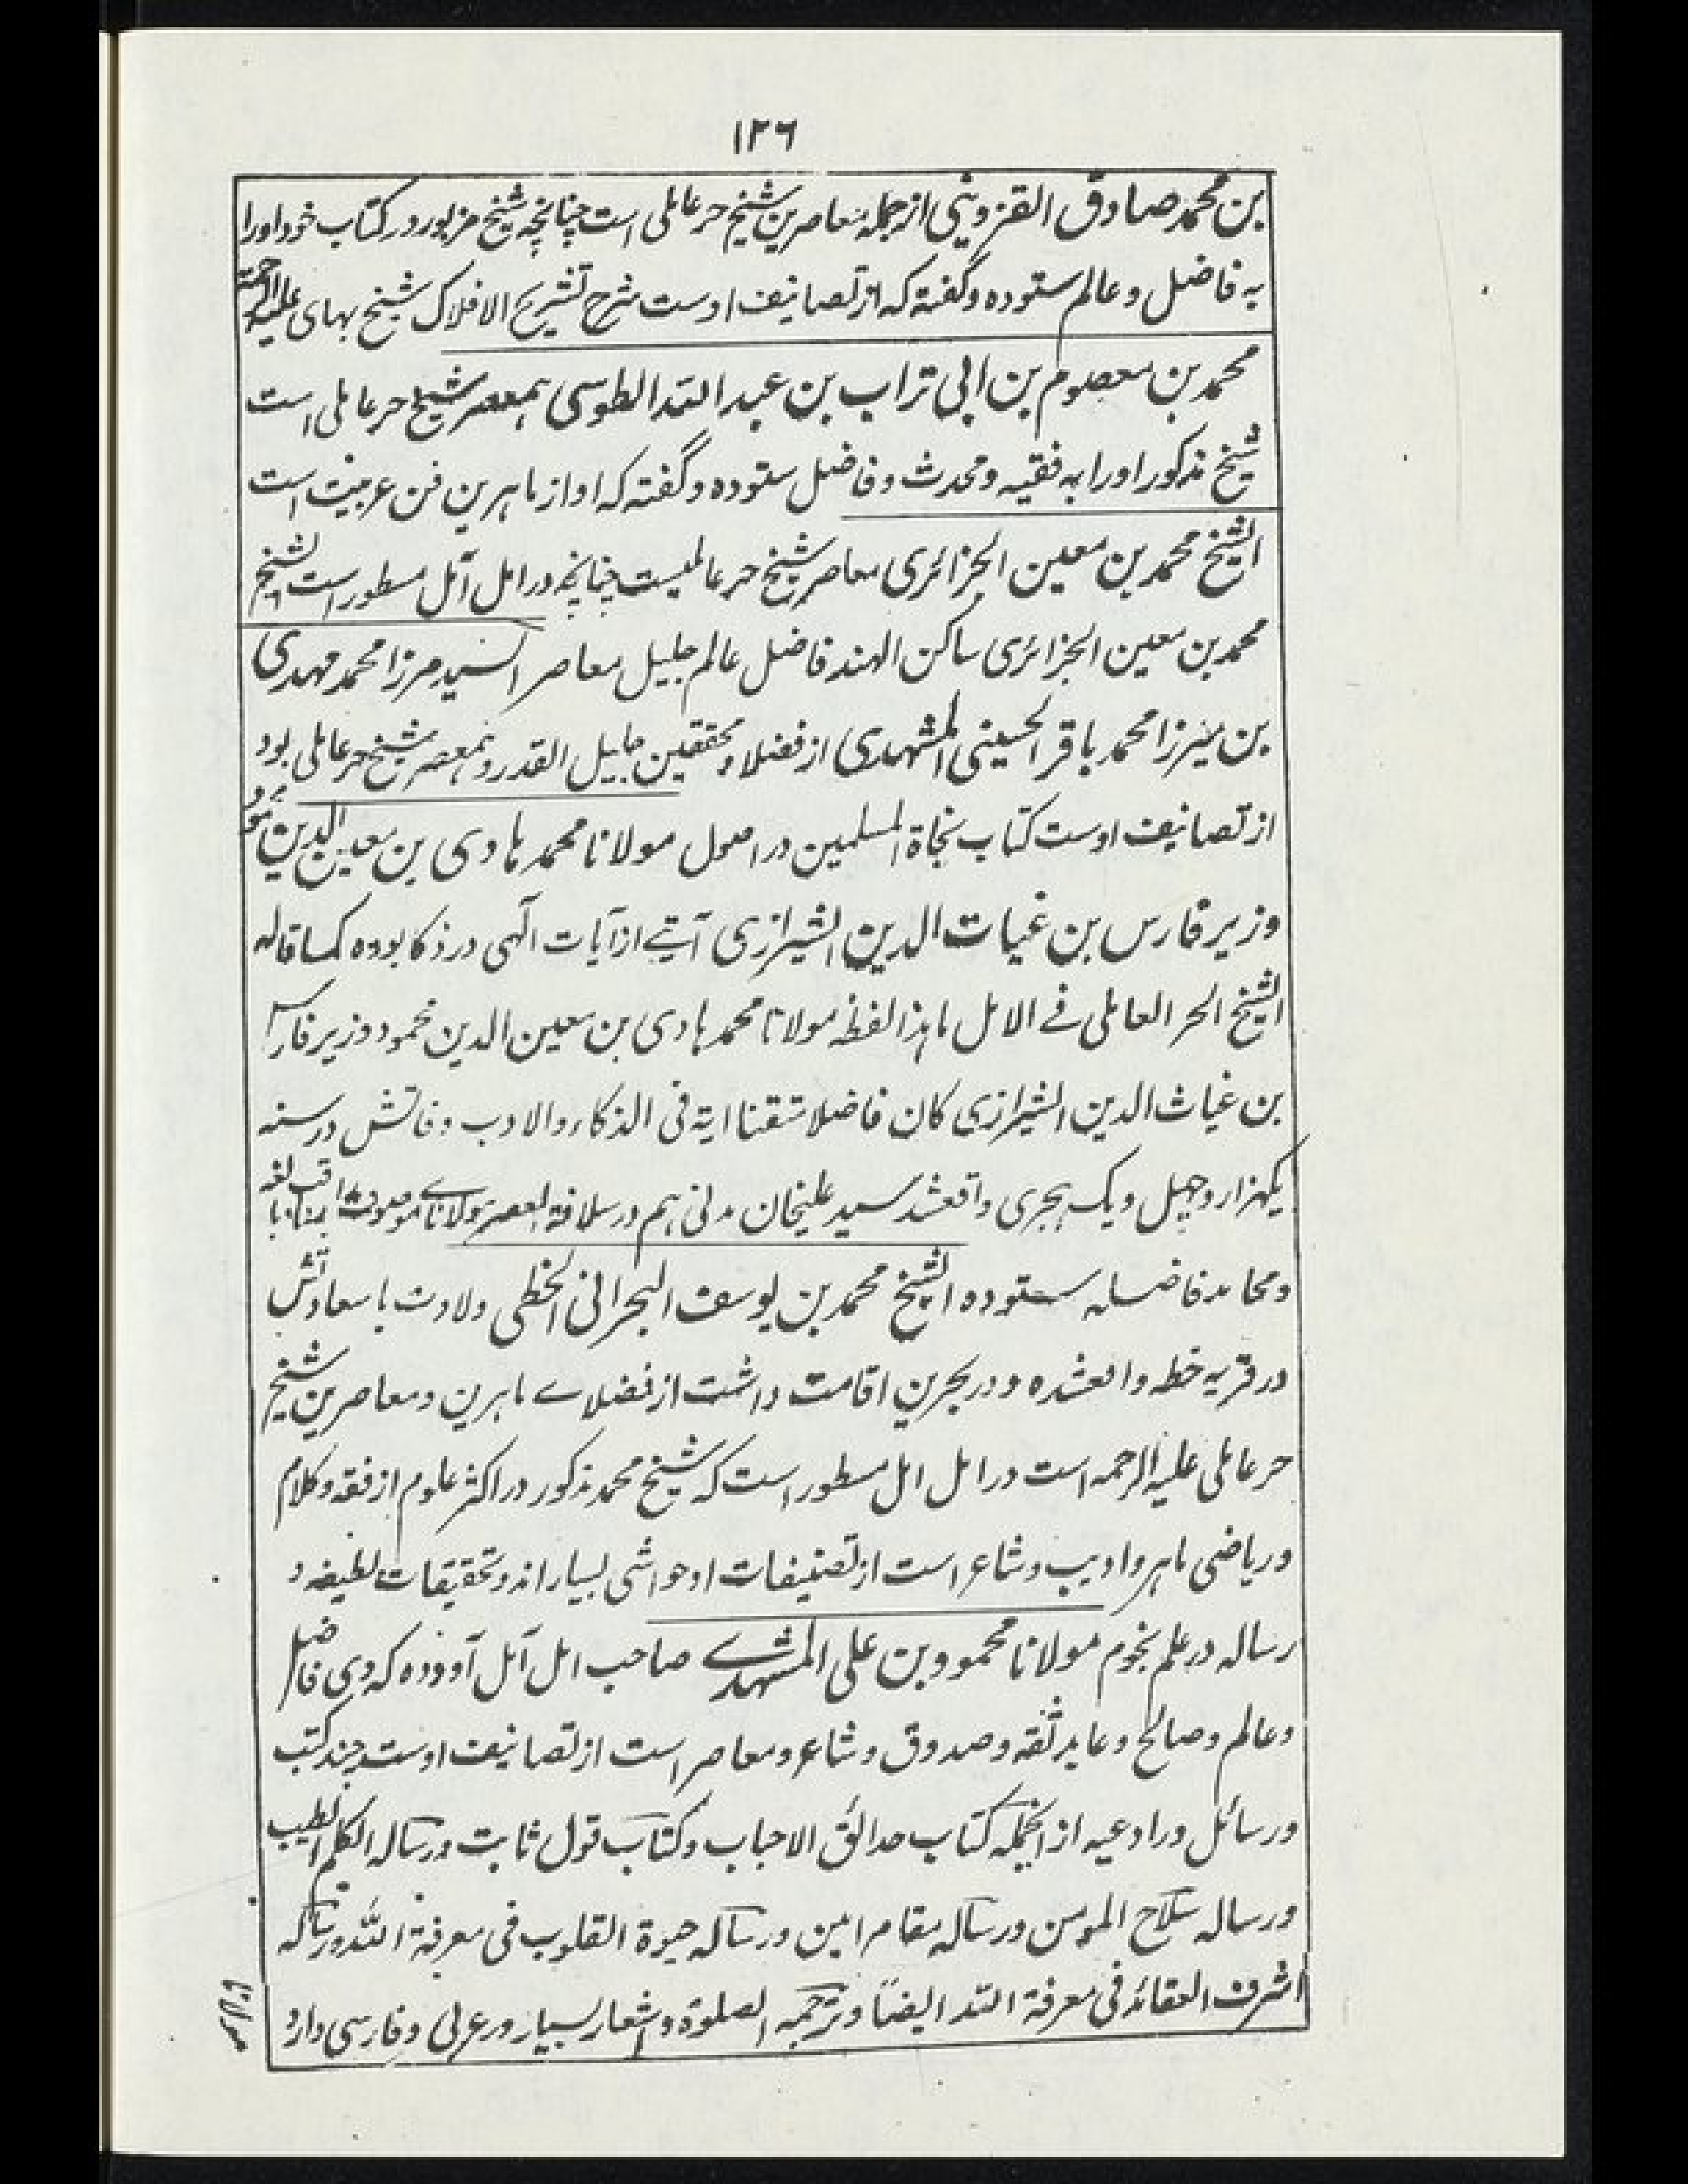 ۱۲۶
بن محمد صادق القزوینی از جمله معاصرین شیخ حر عاملی است چنانچه شیخ مزبور در کتاب خود او را
به فاضل و عالم ستوده و گفته که از تصانیف اوست شرح تشریح الافلاک شیخ بهای علیه الرحمة
محمد بن معصوم بن ابی تراب بن عبد الله الطوسی همعصر شیخ حر عاملی است
شیخ مذکور او را به فقیه و محدث و فاضل ستوده و گفته که او از ماهرین فن عربیت است
الشیخ محمد بن معین الجزائری معاصر شیخ حر عاملیست چنانچه در امل آمل مسطور است الشیخ
محمد بن معین الجزائری ساکن الهند فاضل عالم جلیل معاصر السید مرزا محمد مهدی
بن میرزا محمد باقر الحسینی المشهدی از فضلاء محققین جلیل القدر و همعصر شیخ حر عاملی بود
از تصانیف اوست کتاب نجاة المسلمین در اصول مولانا محمد هادی بن معین الدین محمود
وزیر فارس بن غیاث الدین الشیرازی آیتے از آیات الٓهی در ذکا بوده کما قاله
الشیخ الحر العاملی فے الامل ما هذا لفظه مولانا محمد هادی بن معین الدین محمود وزیر فارس
بن غیاث الدین الشیرازی کان فاضلا متقنا ایة فی الذکاء والادب وفاتش در سنه
یکهزار و چهل و یک هجری واقعشد سید علیخان مدنی هم در سلافة العصر مولاناے موصوف را بمناقب بالغه
و محامد فاضله ستوده الشیخ محمد بن یوسف البحرانی الخطی ولادت با سعادتش
در قریه خطه واقعشده و در بحرین اقامت داشت از فضلاے ماهرین و معاصرین شیخ
حر عاملی علیه الرحمه است در امل امل مسطور است که شیخ محمد مذکور در اکثر علوم از فقه و کلام
و ریاضی ماهر و ادیب و شاعر است از تصنیفات او حواشی بسیار اند و تحقیقات لطیفه و
رساله در علم نجوم مولانا محمود بن علی المشهدے صاحب امل آمل آورده که وی فاضل
و عالم و صالح و عابد ثقه و صدوق و شاعر و معاصر است از تصانیف اوست چند کتب
و رسائل در ادعیه از انجمله کتاب حدائق الاحباب و کتاب قول ثابت و رساله الکلم الطیب
و رساله سلاح المومن و رساله مقام امین و رساله حیوة القلوب فی معرفة الله و رساله
اشرف العقائد فی معرفة الله ایضاً و ترجمه الصلوة و اشعار بسیار در عربی و فارسی دارد